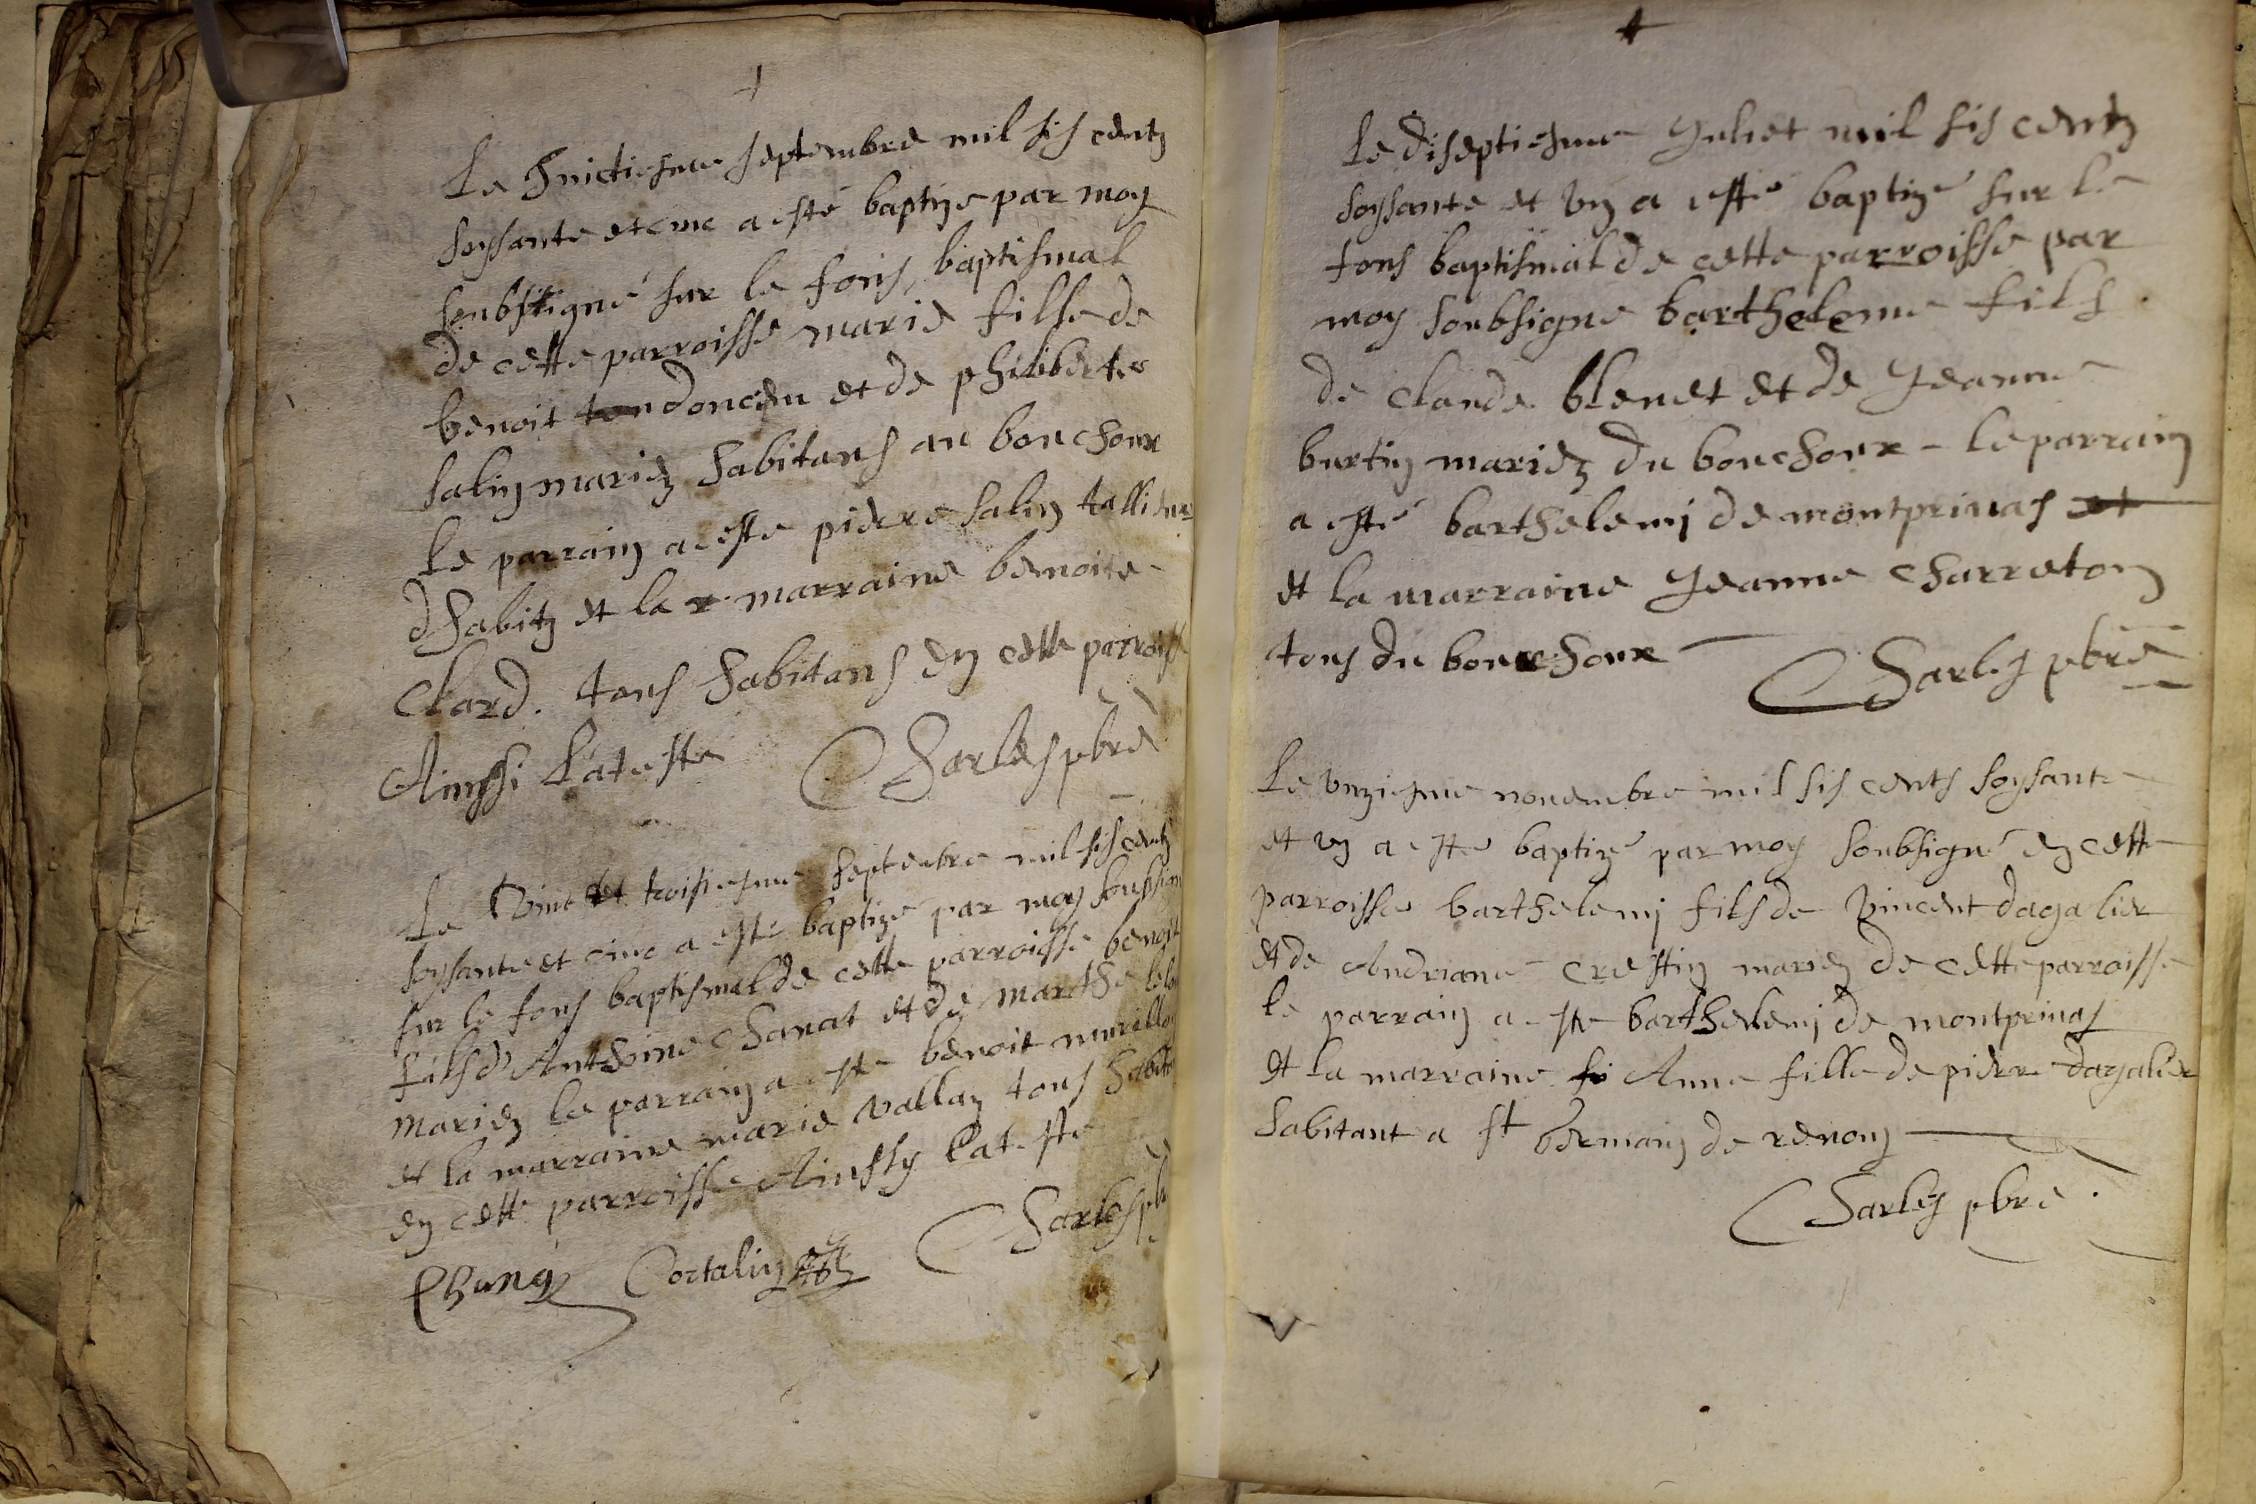 Le huictiesme septembre mil sis centz
soysante et cinc a esté baptize par moy
soubsigné sur le fons baptismal
de cette parroisse marie fille de
benoit dondoncin et de philiberte
salin mariez habitans au bouchoux
Le parrain a este pierre salin
d'habitz et la marraine benoite
Clard. tous habitans en cette parroisse
Ainssi L'ateste Charles pbre
Le vint et troisiesme septenbre mil sis centz
soysante et cinc a esté baptizé par moy soubsigné
sur le fons baptismal de cette parroisse benoit
fils d'Anthoine Chanat et de marthe
mariez le parrain a este benoit
et la marraine marie vallan tous
en cette parroisse Ainssy l'ateste
Charles
Le diseptiesme Juliet mil sis centz
soysante et un a esté baptizé sur le
fons baptismal de cette parroisse par
moy soubsigne bartheleme fils
de Claude blenet et de Jeanne
burtin mariez du bouchoux - le parrain
a esté barthelemi de montprinas et
et la marraine Jeanne Charreton
tous du bouchoux Charles pbre
Le unziesme novembre mil sis cents soysante
et un a este baptizé par moy soubsigné en cette
parroisse barthelemi fils de Vincent dagalier
et de Andriane crestin mariez de cette parroisse
le parrain a este barthelemi de montprinas
et la marraine Anne fille de pierre dagalier
habitant a st Germain de renon
Charles pbre.